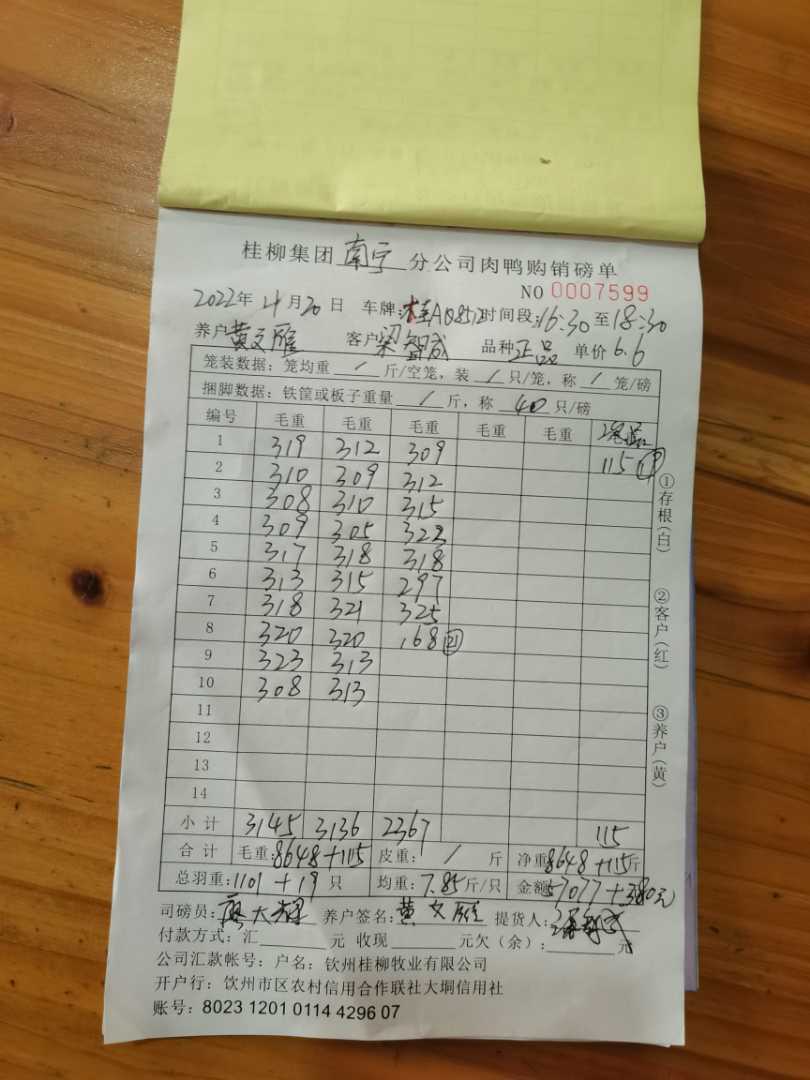 桂柳集团 南宁 分公司肉鸭购销磅单
NO 0007599
2022年 4月20日 车牌:桂A0852 时间段:16:30至18:30
养户 黄文雁 客户 梁智成 品种 正品 单价 6.6
笼装数据:笼均重 / 斤/空笼,装 / 只/笼,称 / 笼/磅
捆脚数据:铁筐或板子重量 / 斤,称 40 只/磅
编号 毛重 毛重 毛重 毛重 毛重
1 319 312 309 115 ⑲
2 310 309 312
3 308 310 315
4 309 305 323
5 317 318 318
6 313 315 297
7 318 321 325
8 320 320 168 ㉑
9 323 313
10 308 313
11
12
13
14
小计 3145 3136 2367 115
合计 毛重:8648+115 皮重: / 斤 净重8648+115斤
总羽重:1101+19只 均重:7.85斤/只 金额57077+380元
司磅员: 养户签名:黄文雁 提货人:
付款方式:汇 元 收现 元欠(余): 元
公司汇款帐号:户名:钦州桂柳牧业有限公司
开户行:钦州市区农村信用合作联社大垌信用社
账号:8023 1201 0114 4296 07
①存根(白)
②客户(红)
③养户(黄)